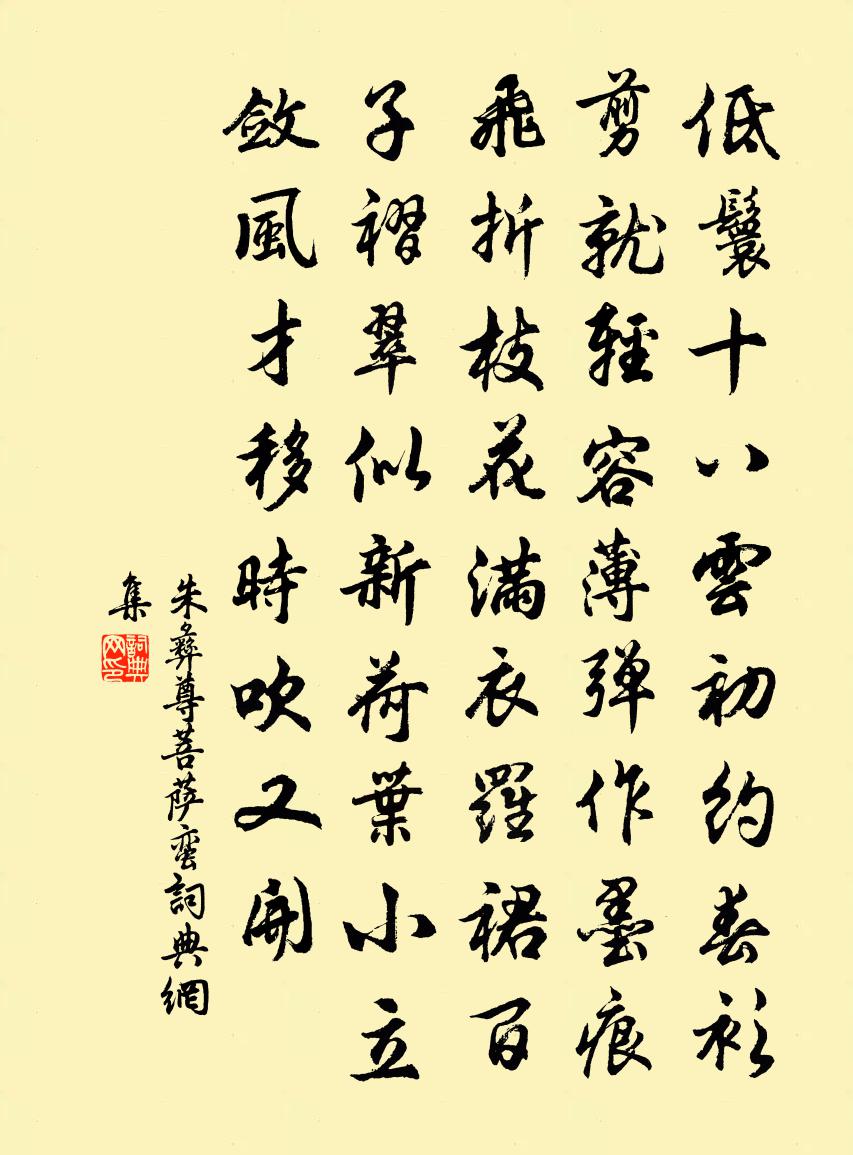 低鬟十八雲初約春衫
剪就輕容薄弹作墨痕
飛折枝花满衣羅裙百
子褶翠似新荷葉小立
斂風才移時吹又開
朱彝尊菩萨蛮詞典網
集
詞典
网印